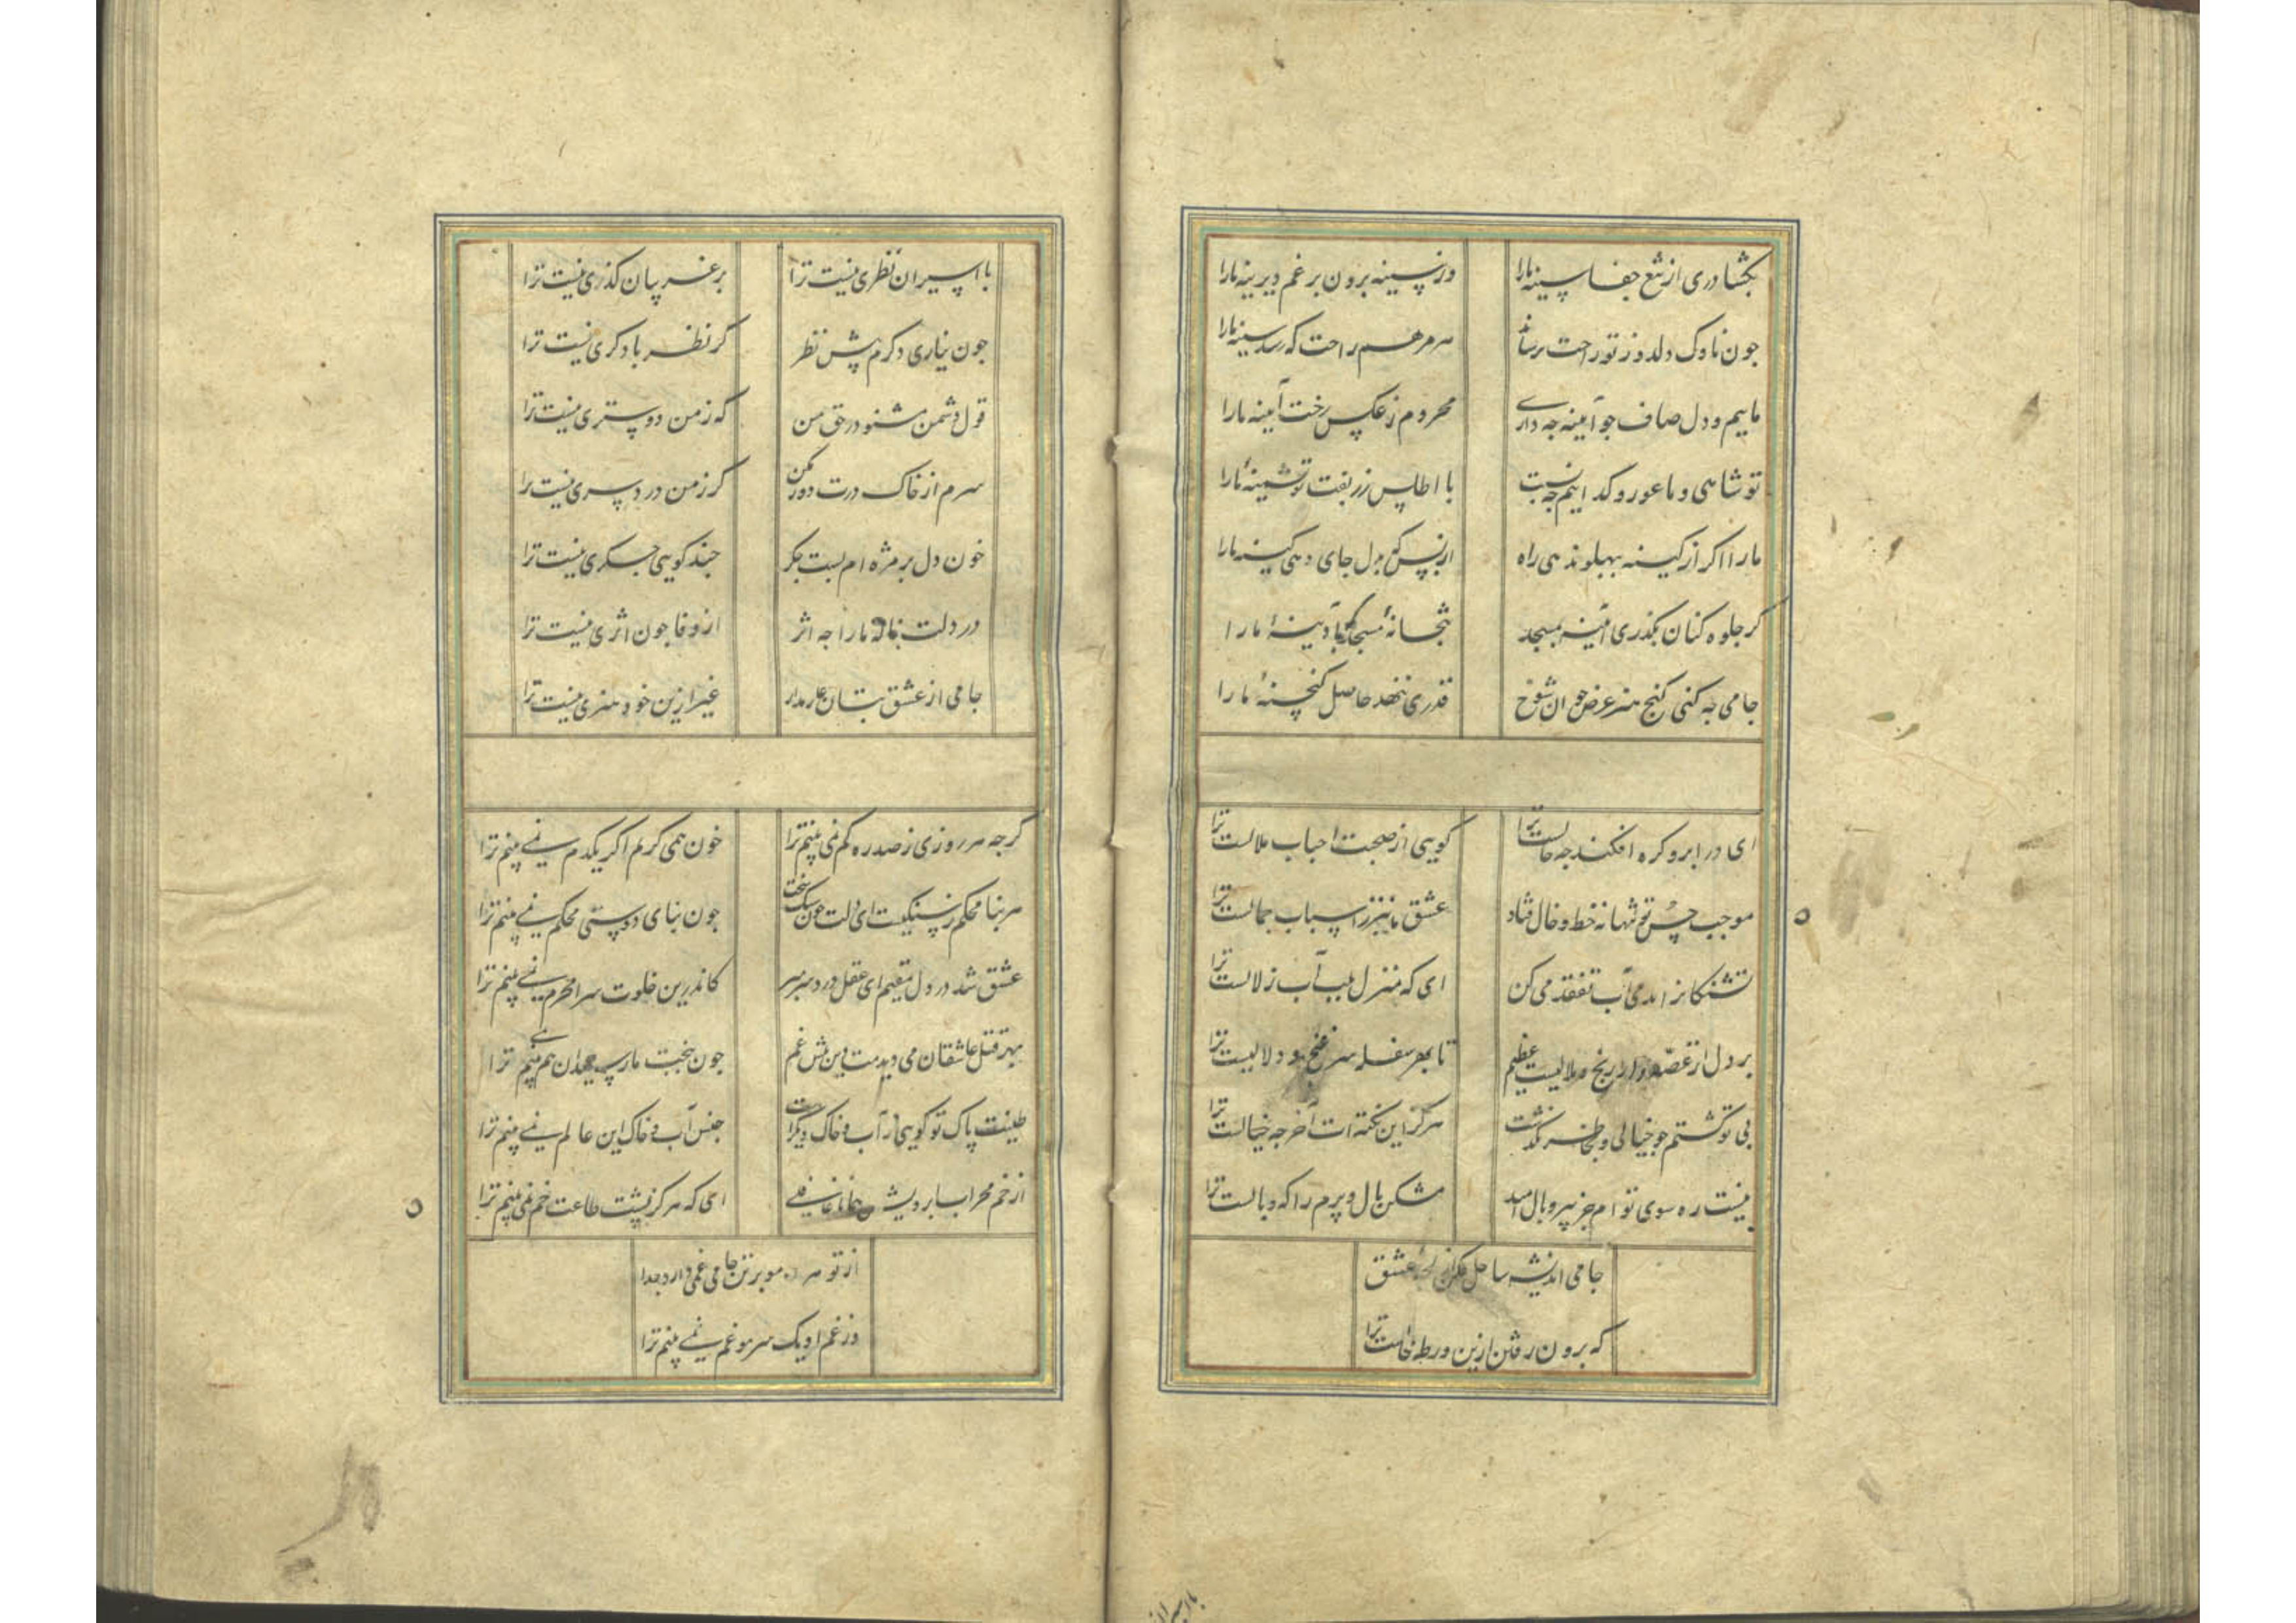 بکشا دری از تیغ جفا سینه مارا وز سینه برون بر غم دیرینه مارا
جون ناوک دلدوز تو راحت برساند هر مرهم راحت که رسد سینه مارا
ماییم و دل صاف جو آیینه جه داری محروم ز عکس رخت آیینه مارا
تو شاهی و ما عور و کداییم جه نسبت با اطلس زربفت تو پشمینه مارا
مارا اکر از کینه بپهلو ندهی راه از بس که بدل جای دهی کینه مارا
کر جلوه کنان بکذری آدینه بمسجد بتخانه مسجد آدینه مارا
جامی جه کنی کنج هنر عرض جو ان شوخ قدری ننهد حاصل کنجینه مارا
ای در ابرو کره افکنده جه حالست ترا کویی از صحبت احباب ملالست ترا
موجب حسن تو تنها نه خط و خال فتاد عشق ما نیز ز اسباب جمالست ترا
تشنکانرا بدمی آب تفقد می کن ای که منزل بلب آب زلالست ترا
بر دل از غصه رنج ملالیست عظیم تا بهر سفله سر غنج و دلالیست ترا
بی تو کشتم جو خیالی و بخاطر نکذشت هرکز این نکته ات آخر جه خیالست ترا
نیست ره سوی تو ام جز بپر و بال امید مشکن بال و پرم را که وبالست ترا
جامی اندیشه ساحل مکن از لجه عشق
که برون رفتن ازین ورطه محالست ترا
با اسیران نظری نیست ترا بر غریبان کذری نیست ترا
جون نیاری دکرم پیش نظر کر نظر با دکری نیست ترا
قول دشمن مشنو در حق من که ز من دوستری نیست ترا
سرم از خاک درت دور مکن کر ز من درد سری نیست ترا
خون دل بر مژه ام بست جکر جند کویی جکری نیست ترا
در دلت ناله مارا جه اثر از وفا جون اثری نیست ترا
جامی از عشق بتان عار مدار غیر ازین خود هنری نیست ترا
کرجه هر روزی ز صد ره کم نمی بینم ترا خون همی کریم اکر یکدم نمی بینم ترا
هر بنا محکم ز سنکست ای دلت جون سنک سخت جون بنای دوستی محکم نمی بینم ترا
عشق شد در دل مقیم ای عقل درد سر ببر کاندرین خلوت سرا محرم نمی بینم ترا
بهر قتل عاشقان می دیدمت زین پیش غم جون بخت ما هم نمی بینم ترا
طینت پاک تو کویی ز آب و خاک دیکرست جنس آب و خاک این عالم نمی بینم ترا
از خم محراب ابرویش همانا غافلی ای که هرکز پشت طاعت خم نمی بینم ترا
از تو هر مو بر تن جامی غمی دارد جدا
وز غم او یک سر مو غم نمی بینم ترا